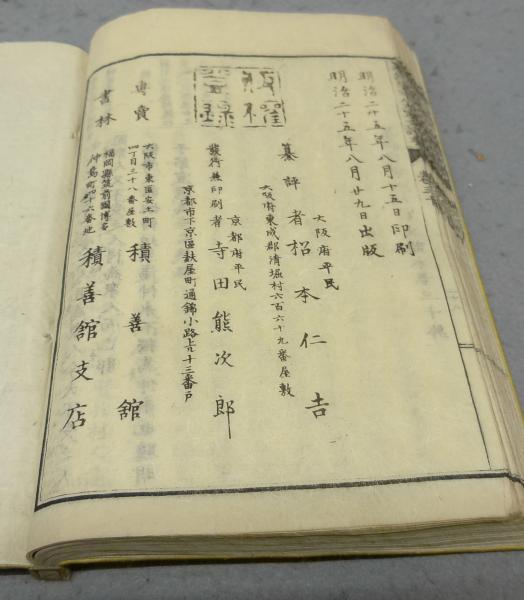 明治二十五年八月十五日印刷
明治二十五年八月廿九日出版
版權
登録
大阪府平民
纂評者 松本仁吉
大阪府東成郡清堀村六百六十九番屋敷
京都府平民
發行兼印刷者 寺田熊次郎
京都市下京區麩屋町通錦小路上ル十三番戸
專賣
大阪市東區安土町
四丁目三十八番屋敷
積善館
書林
福岡縣筑前國博多
中島町四十六番地
積善館支店